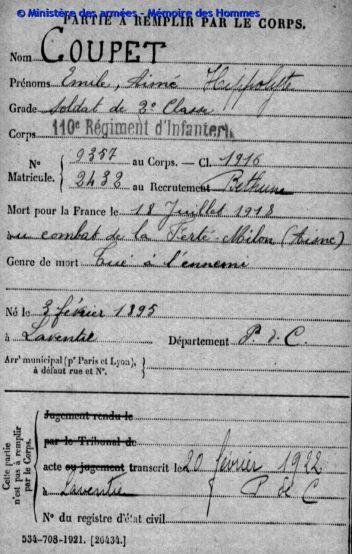 © Ministère des armées - Mémoire des Hommes
PARTIE À REMPLIR PAR LE CORPS.
Nom COUPET
Prénoms Emile, Aimé Hippolyte
Grade Soldat de 2e Classe
Corps 110e Régiment d'Infanterie
N° 9357 au Corps. — Cl. 1916
Matricule. 2432 au Recrutement Béthune
Mort pour la France le 18 Juillet 1918
au combat de la Ferté-Milon (Aisne)
Genre de mort tué à l'ennemi
Né le 3 février 1895
à Laventie Département P. d. C.
Arr' municipal (p' Paris et Lyon),
à défaut rue et N°.
Cette partie n'est pas à remplir par le Corps.
Jugement rendu le
par le Tribunal de
acte ou jugement transcrit le 20 février 1922
à Laventie P d C
N° du registre d'état civil
534-708-1921. [26434.]